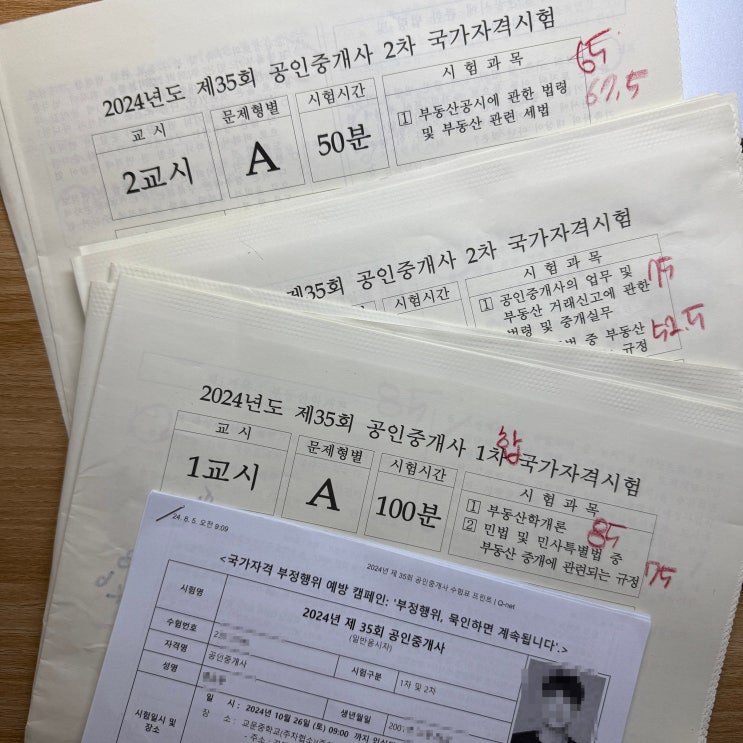 2024년도 제35회 공인중개사 2차 국가자격시험
교 시
문제형별
시험시간
시 험 과 목
65
67.5
2교시
A
50분
1 부동산공시에 관한 법령
및 부동산 관련 세법
제35회 공인중개사 2차 국가자격시험
시험시간
시 험 과 목
1 공인중개사의 업무 및
부동산 거래신고에 관한
법령 및 중개실무
중 부동산
규정
75
52.5
2024년도 제35회 공인중개사 1차 국가자격시험
합
교 시
문제형별
시험시간
시 험 과 목
1교시
A
100분
1 부동산학개론
2 민법 및 민사특별법 중
부동산 중개에 관련되는 규정
85
75
24. 8. 5. 오전 9:09
2024년 제 35회 공인중개사 수험표 프린트 | Q-net
<국가자격 부정행위 예방 캠페인: '부정행위, 묵인하면 계속됩니다'.>
시험명
2024년 제 35회 공인중개사
(일반응시자)
수험번호
시험구분
1차 및 2차
자격명
공인중개사
성명
생년월일
200
시험일시 및
장소
일 시 : 2024년 10월 26일 (토) 09:00 까지
장 소 : 교문중학교(주차협소)
- 주소 :